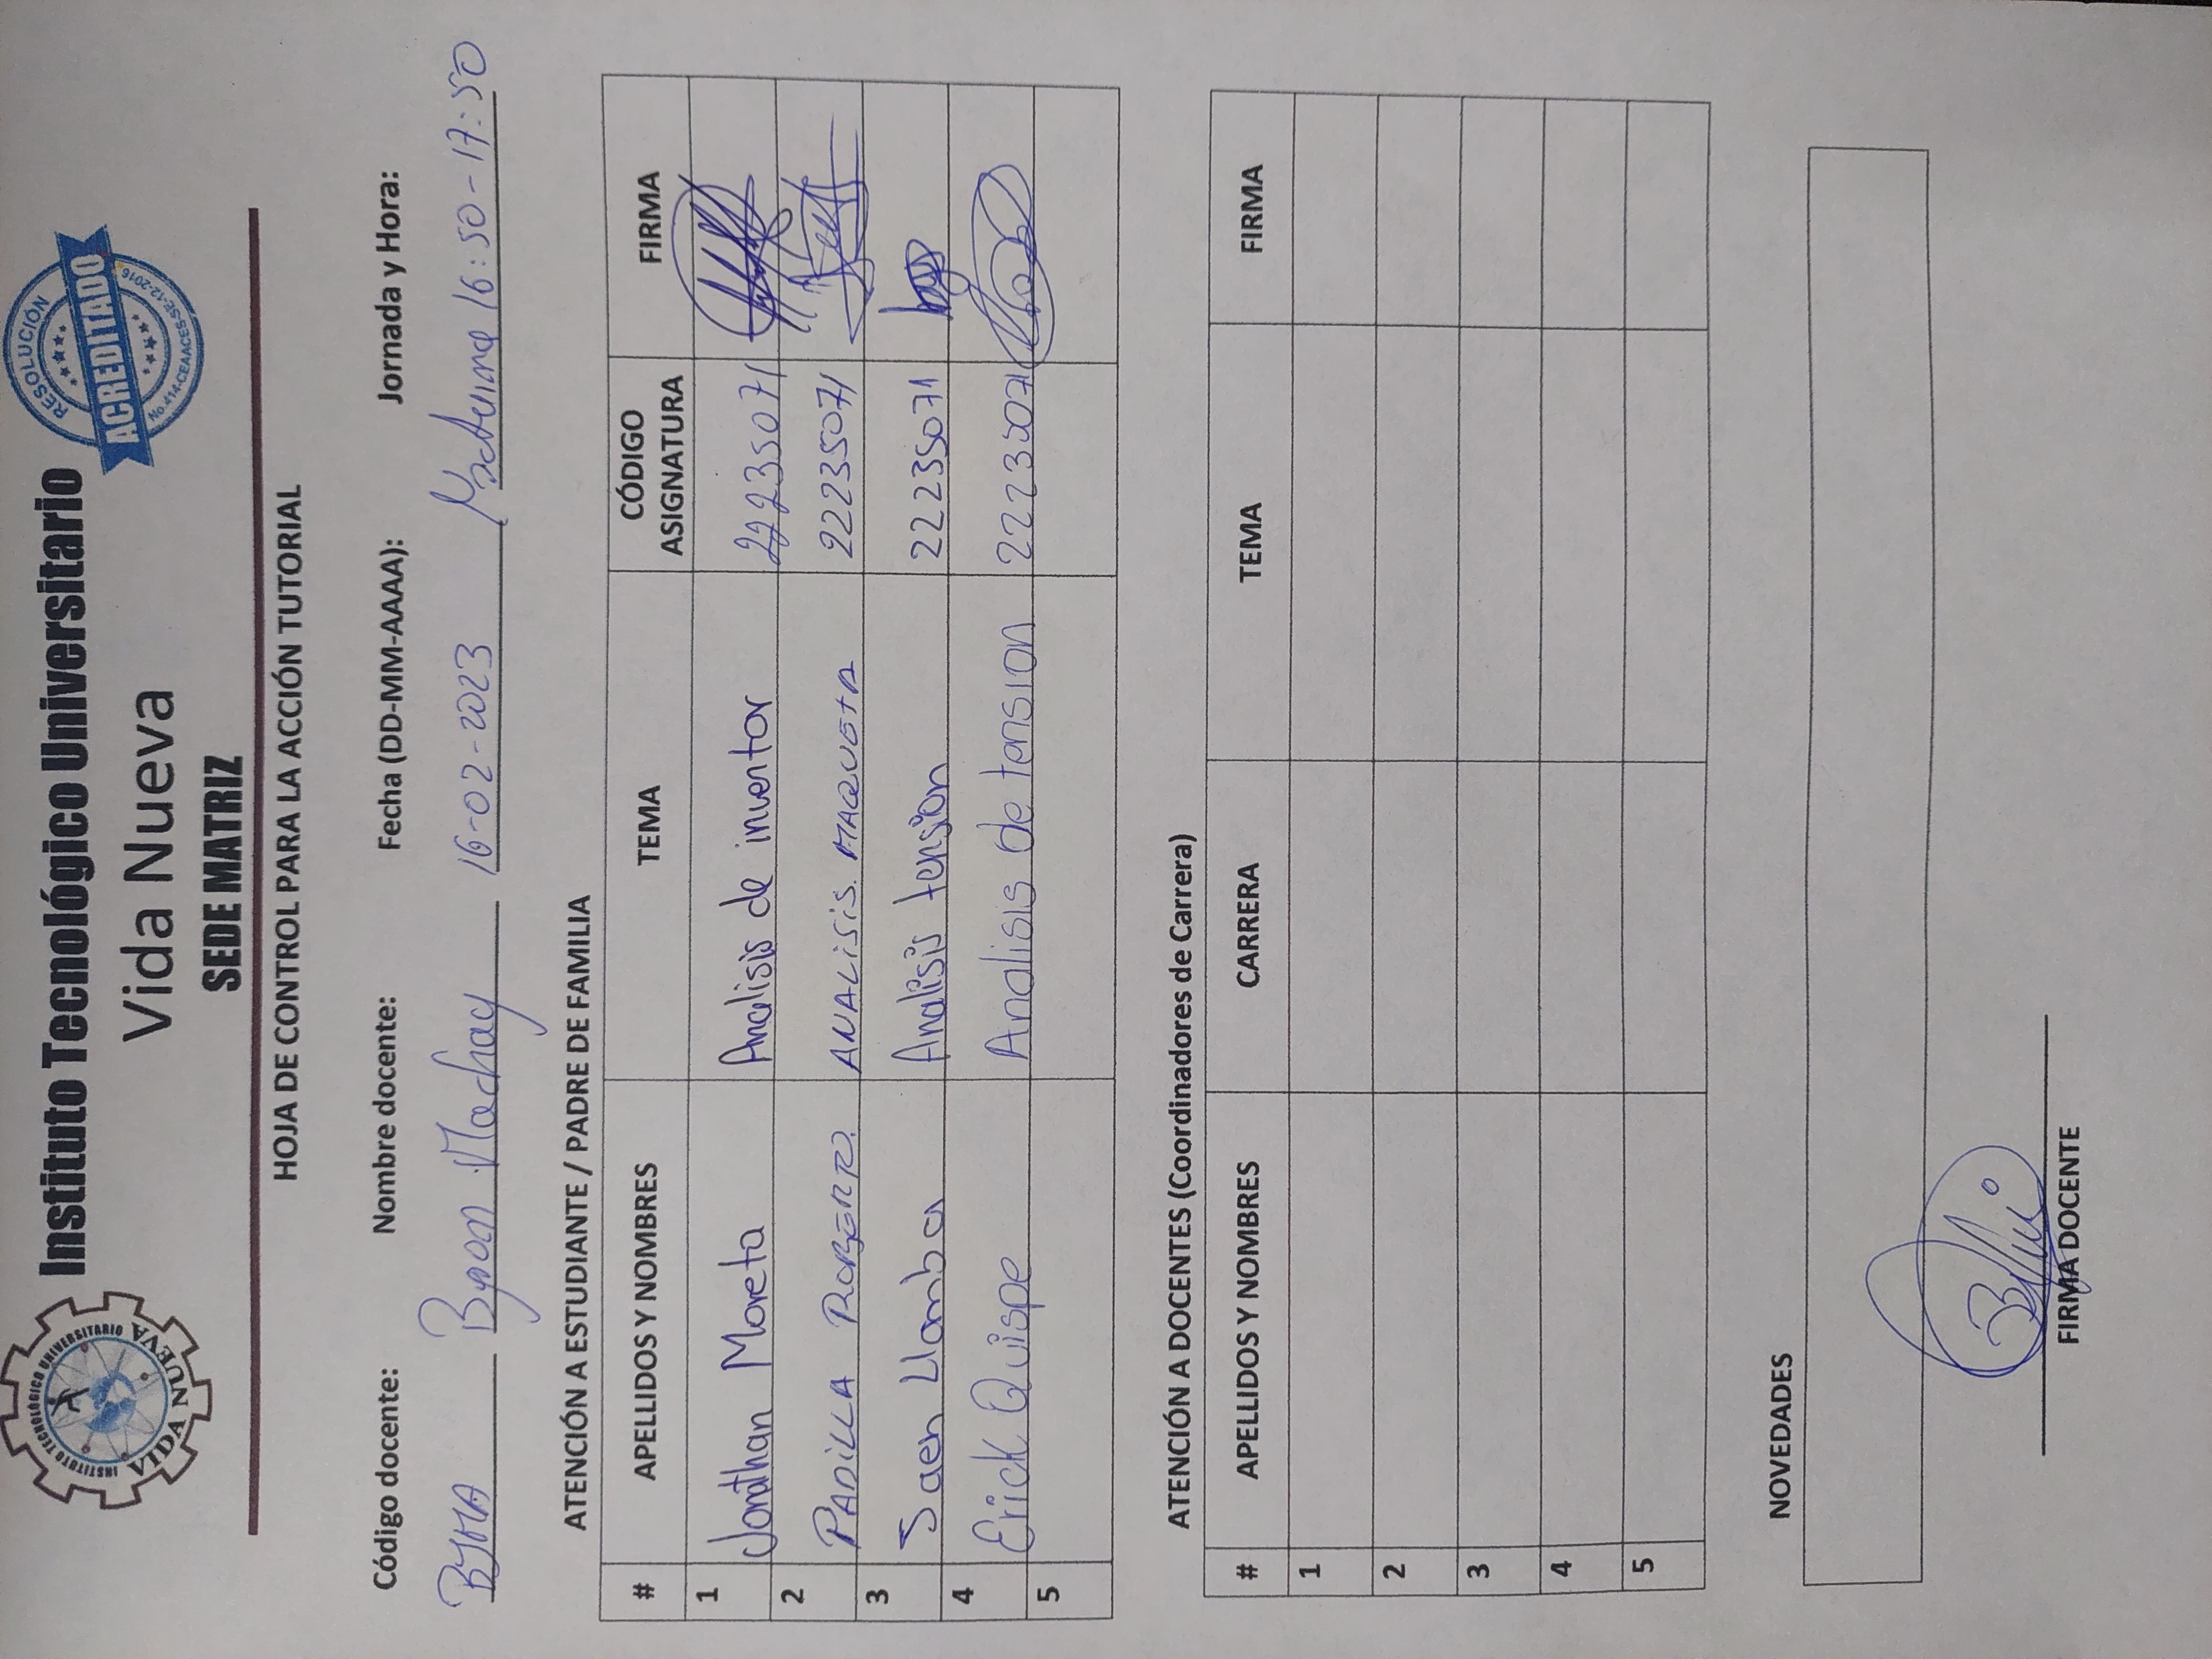 INSTITUTO TECNOLÓGICO UNIVERSITARIO
VIDA NUEVA
Instituto Tecnológico Universitario
Vida Nueva
SEDE MATRIZ
RESOLUCIÓN
ACREDITADO
No.414-CEAACES-SE-12-2016
HOJA DE CONTROL PARA LA ACCIÓN TUTORIAL
Código docente: Nombre docente: Fecha (DD-MM-AAAA): Jornada y Hora:
BJMA Byron Machay 16-02-2023 16:50-17:50
ATENCIÓN A ESTUDIANTE / PADRE DE FAMILIA
# APELLIDOS Y NOMBRES TEMA CÓDIGO ASIGNATURA FIRMA
1 Jonathan Moreta Analisis de inventor 22235071
2 PADILLA ROBERTO. ANALISIS. MAQUETA 22235071
3 Saen Llamba Analisis tension 22235071
4 Erick Quispe Analisis de tension 22235071
5
ATENCIÓN A DOCENTES (Coordinadores de Carrera)
# APELLIDOS Y NOMBRES CARRERA TEMA FIRMA
1
2
3
4
5
NOVEDADES
FIRMA DOCENTE